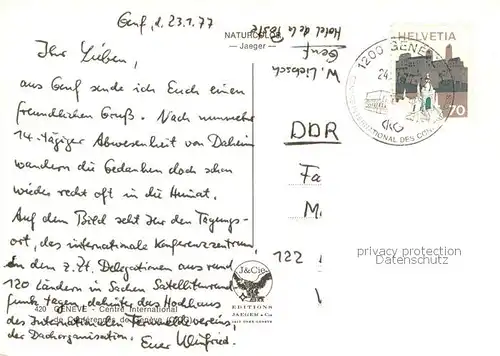 Genf, d. 23.1.77
Ihr Lieben,
aus Genf sende ich Euch einen
freundlichen Gruß. Nach nunmehr
14-tägiger Abwesenheit von Daheim
wandern die Gedanken doch schon
wieder recht oft in die Heimat.
Auf dem Bild seht Ihr den Tagungs-
ort, das internationale Konferenzzentrum,
in dem z.Zt. Delegationen aus rund
120 Ländern in Sachen Satellitenrund
funks tagen, dahinter das Hochhaus
des Internationalen Fernmeldevereins,
der Dachorganisation. Euer Winfried.
420 GENEVE - Centre International
de Conférences de Genève (CICG)
NATURCOLOR
Jaeger
J&Cie
EDITIONS
JAEGER & Cie
W. Liebsch
Hotel de la
Genf
HELVETIA
70
1200 GENÈVE
24.
INTERNATIONAL DES CON
DDR
Fa
M
122
privacy protection
Datenschutz